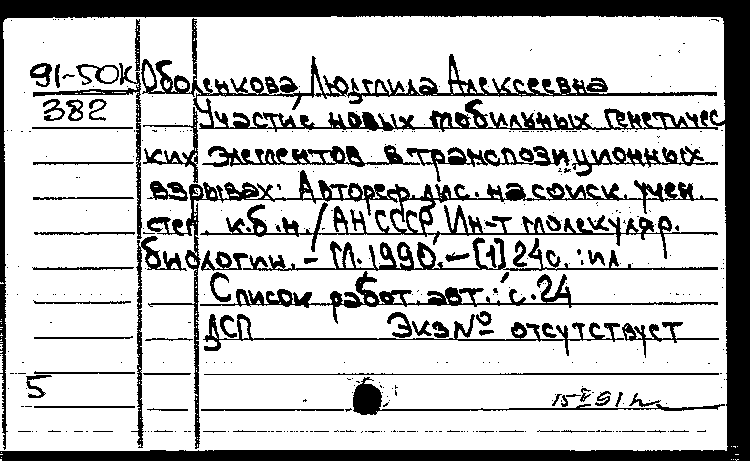 91-50к Оболенкова, Людмила Алексеевна
382 Участие новых мобильных генетичес
ких элементов в транспозиционных
взрывах: Автореф. дис. на соиск. учен.
степ. к.б.н. / АН СССР, Ин-т молекуляр.
биологии. - М. 1990. - [1] 24 с. : ил.
Список работ авт.: с. 24
ДСП Экз № отсутствует
5